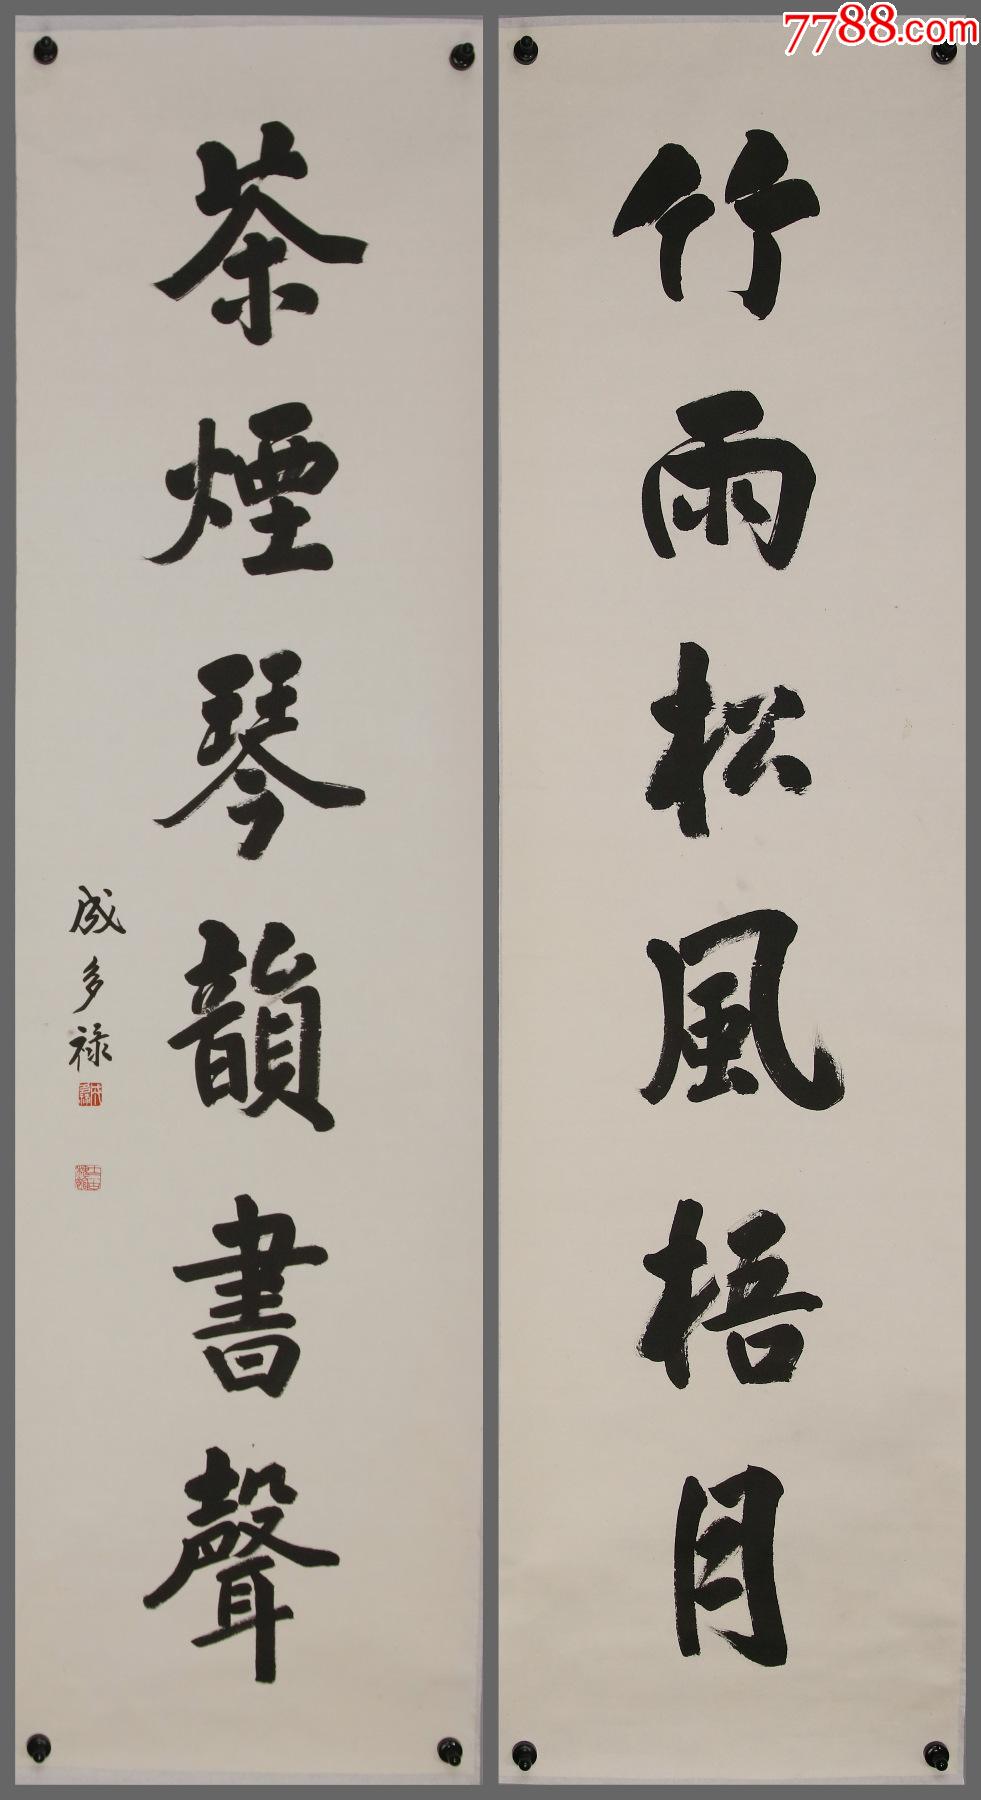 7788.com
竹雨松風梧月
茶煙琴韻書聲
成多祿